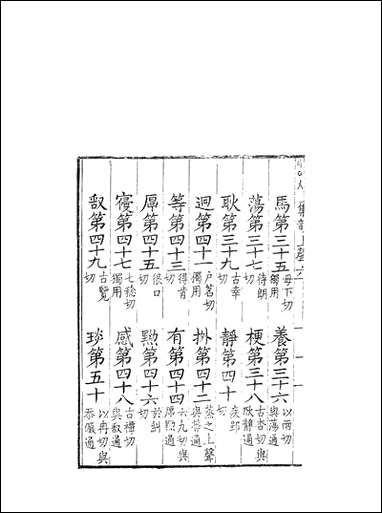 集韻上聲六
馬第三十五母下切獨用 養第三十六以兩切與蕩通
蕩第三十七待朗切 梗第三十八古杏切與耿靜通
耿第三十九古幸切 靜第四十疾郢切
迥第四十一戶茗切獨用 拯第四十二蒸之上聲與等通
等第四十三得肯切 有第四十四云九切與厚黝通
厚第四十五很口切 黝第四十六於糾切
寑第四十七七稔切獨用 感第四十八古禫切與𣪘通
𣪘第四十九古覽切 琰第五十以冉切與忝儼通